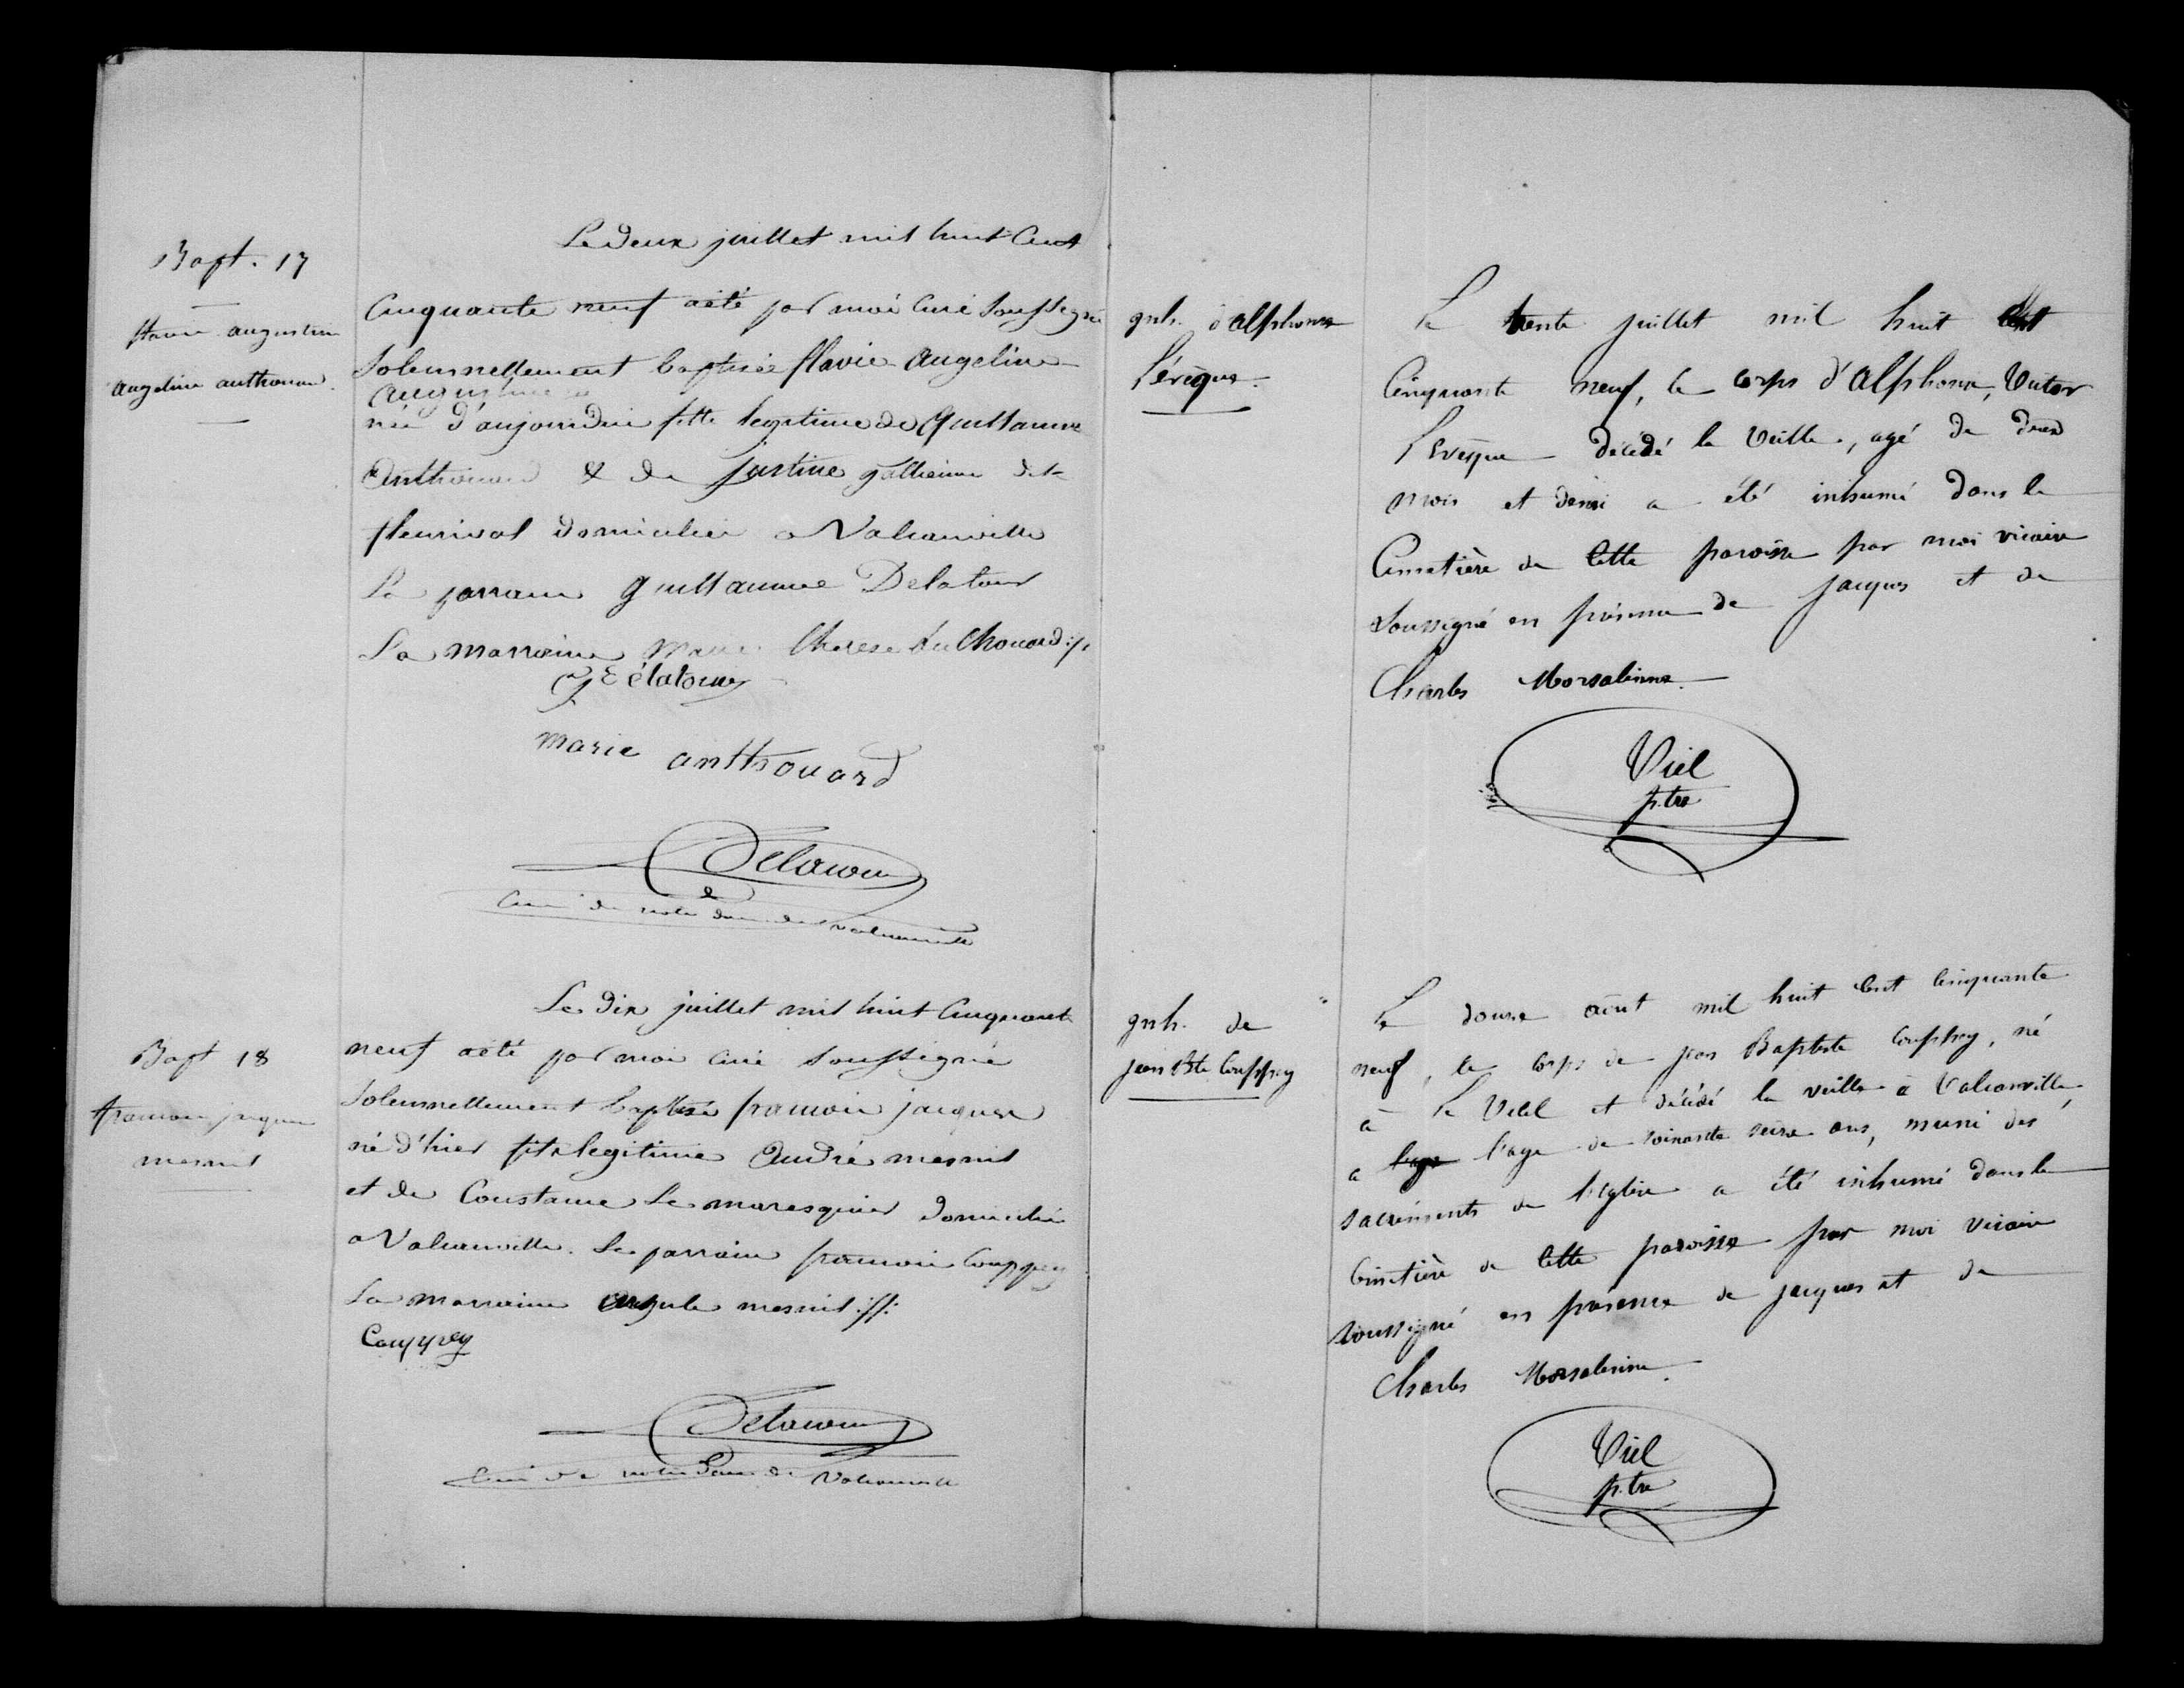 Bapt. 17
flavie augustine
angeline anthouard.
Le deux juillet mil huit Cent
Cinquante neuf a été par moi Curé Soussigné
Solennellement baptisée flavie Angeline
augustine
née d'aujourdui fille legitime de Guillaume
Anthouard & de Justine gallienne dit
fleurival domiciliés a Valcanville
Le parrain Guillaume Delatour
La marraine Marie therese Anthouard :/:
G Délatour
marie anthouard
Delacour
Curé de notre dame de Valcanville
Bapt 18
francois jacques
mesnil
Le dix juillet mil huit Cinquante
neuf a été par moi Curé Soussigné
Solennellement baptisé francois jacques
né d'hier fils legitime André mesnil
et de Constance Le maresquier domiciliés
a Valcanville. Le parrain francois Couppey
La marraine mesnil :/:
Couppey
Delacour
Curé de notre Dame de Valcanville
inh. d'Alphonse
Lévèque.
Le trente juillet mil huit Cent
Cinquante neuf, le corps d'Alphonse, Victor
Levèque décédé la Veille, agé de deux
mois et demi a été inhumé dans le
Cimetière de Cette paroisse par moi vicaire
Soussigné en présence de jacques et de
Charles Morsalinne.
Viel
p.tre
inh. de
jean Bte Couppey
Le douze août mil huit Cent Cinquante
neuf, le corps de jean Baptiste Couppey, né
à Le Vicel et décédé la veille à Valcanville
a l'age l'age de soixante seize ans, muni des
sacrements de l'Eglise a été inhumé dans le
Cimetière de Cette paroisse par moi vicaire
soussigné en présence de jacques et de
Charles Morsalinne.
Viel
p.tre